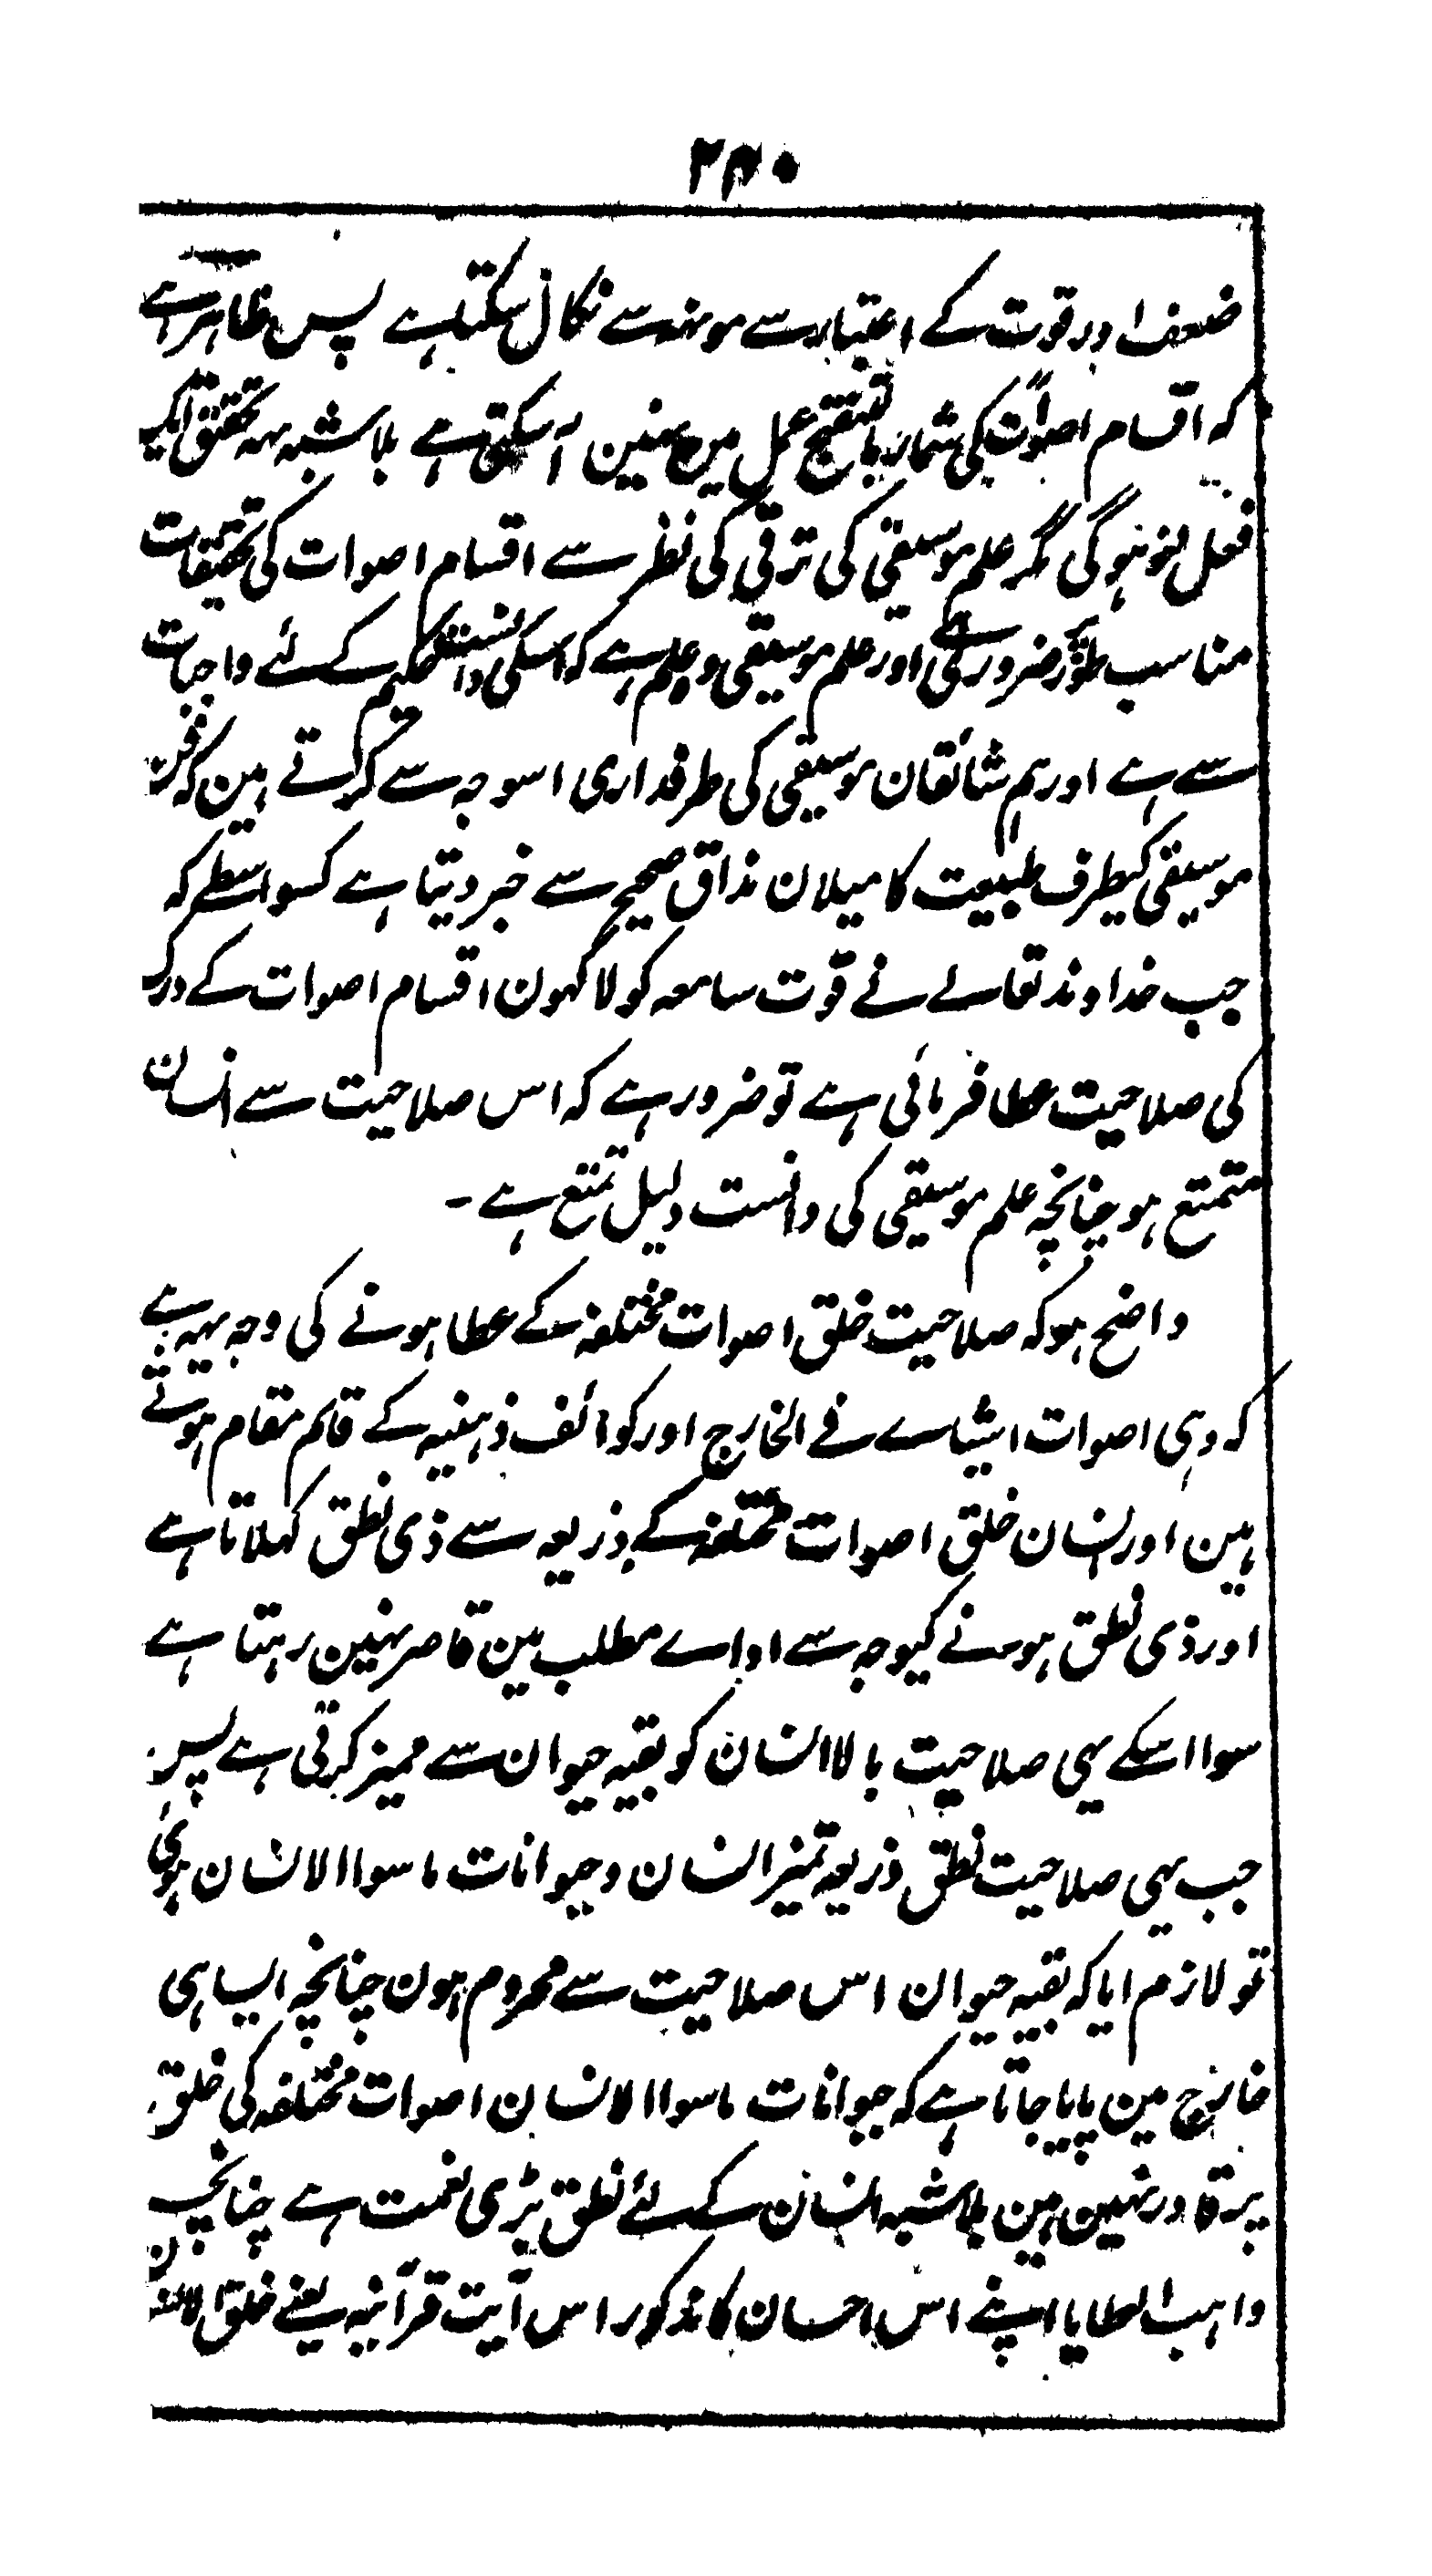 ۲۸۰
ضعف اور قوت کے اعتبار سے مونہہ سے نکال سکتا ہے پس ظاہر ہے
کہ اقسام اصوات کی شمار بالتنقیح عمل مین نہین آ سکتی ہے بلا شبہہ یہہ تحقیق ایک
فعل لغو ہوگی مگر علم موسیقی کی ترقی کی نظر سے اقسام اصوات کی تحقیقات
مناسب طور پر ضرور ہے اور علم موسیقی وہ علم ہے کہ اسکی دانست حکیم کے لئے واجبات
سے ہے اور ہم شائقان موسیقی کی طرفداری اسوجہ سے کرتے ہین کہ فن
موسیقی کیطرف طبیعت کا میلان مذاق صحیح سے خبر دیتا ہے کسواسطے کہ
جب خداوند تعالے نے قوّت سامعہ کو لاکہون اقسام اصوات کے درک
کی صلاحیت عطا فرمائی ہے تو ضرور ہے کہ اس صلاحیت سے انسان
متمتع ہو چنانچہ علم موسیقی کی دانست دلیل تمتع ہے ۔
واضح ہو کہ صلاحیت خلق اصوات مختلفہ کے عطا ہونے کی وجہ یہہ ہے
کہ وہی اصوات اشیاے فے الخارج اور کوائف ذہنیہ کے قائم مقام ہوتے
ہین اور انسان خلق اصوات مختلفہ کے ذریعہ سے ذی نطق کہلاتا ہے
اور ذی نطق ہونے کیوجہ سے اداے مطلب مین قاصر نہین رہتا ہے
سوا اسکے یہی صلاحیت بالا انسان کو بقیہ حیوان سے ممیز کرتی ہے پس
جب یہی صلاحیت نطق ذریعہ تمیز انسان و حیوانات ما سوا الانسان ہوئی
تو لازم ایا کہ بقیہ حیوان اس صلاحیت سے محروم ہون چنانچہ ایسا ہی
خارج مین پایا جاتا ہے کہ حیوانات ما سوا الانسان اصوات مختلفہ کی خلق
پر قادر نہین ہین بلا شبہہ انسان کے لئے نطق بڑی نعمت ہے چنانچہ
واہب العطایا اپنے اس احسان کا مذکور اس آیت قرآنیہ یعنے خلق الانسان